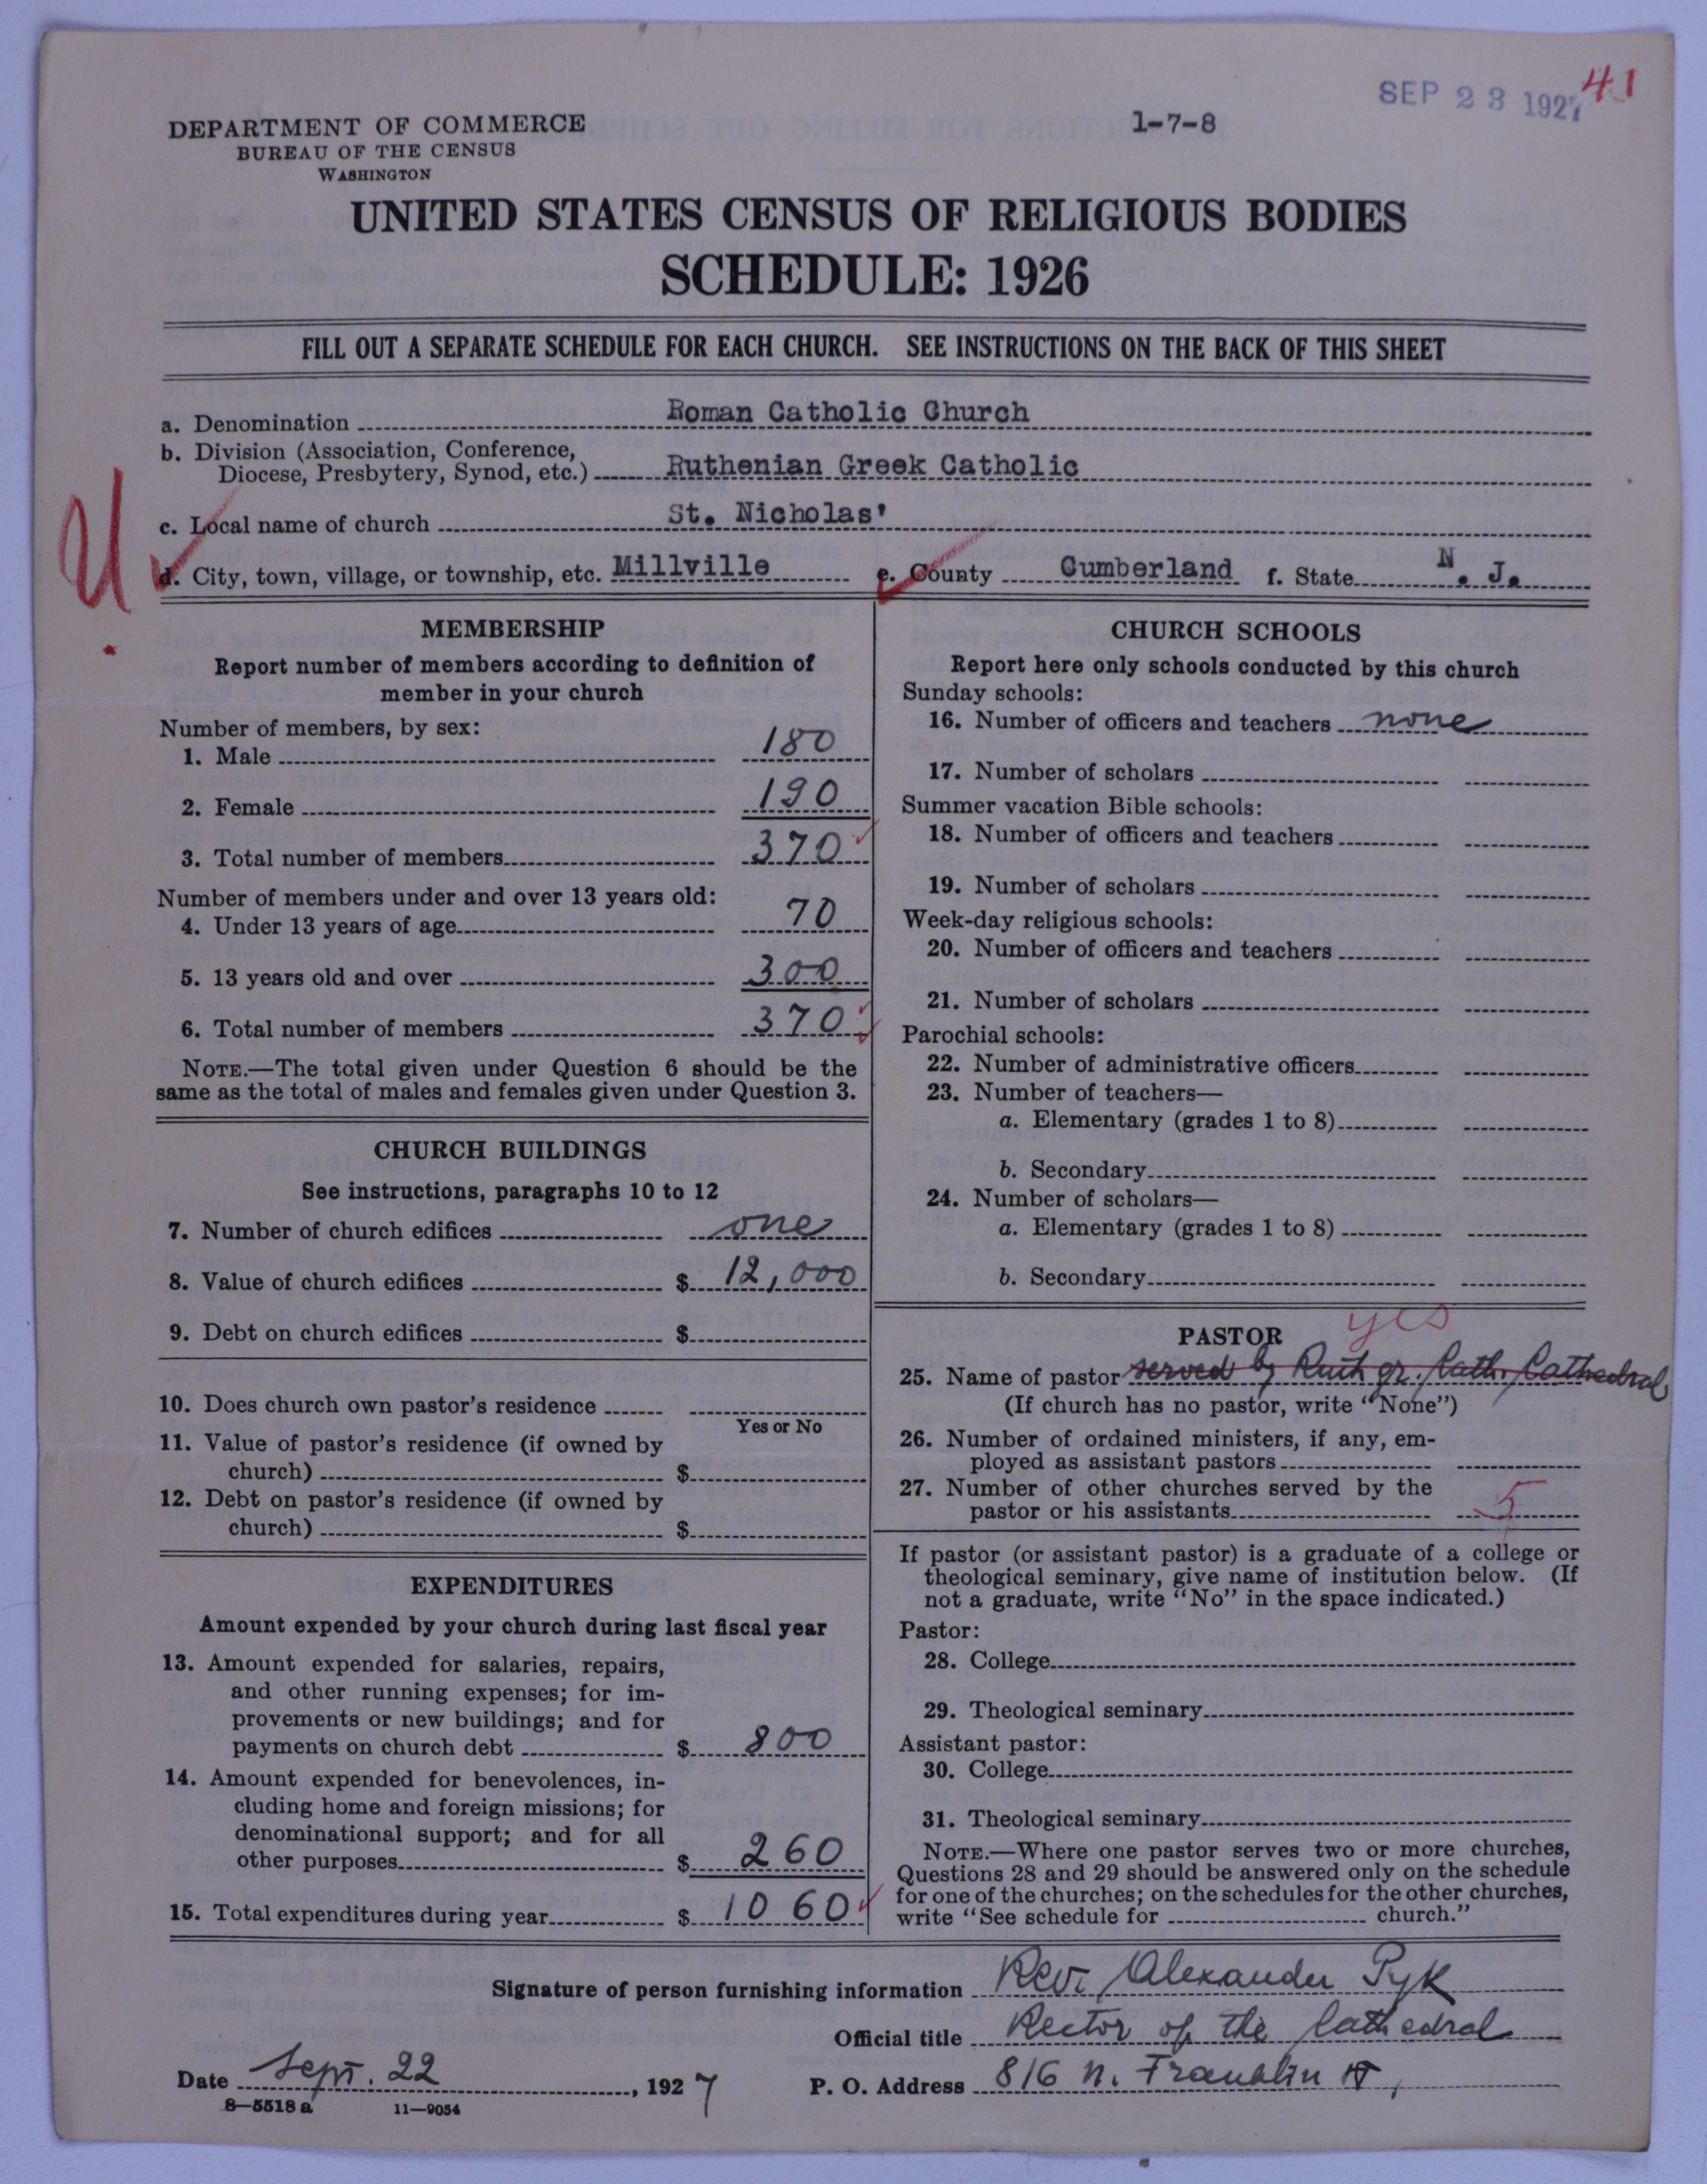 SEP 23 1927
41
1-7-8
DEPARTMENT OF COMMERCE
BUREAU OF THE CENSUS
WASHINGTON
UNITED STATES CENSUS OF RELIGIOUS BODIES
SCHEDULE: 1926
FILL OUT A SEPARATE SCHEDULE FOR EACH CHURCH. SEE INSTRUCTIONS ON THE BACK OF THIS SHEET
a. Denomination Roman Catholic Church
b. Division (Association, Conference,
Diocese, Presbytery, Synod, etc.) Ruthenian Greek Catholic
c. Local name of church St. Nicholas'
d. City, town, village, or township, etc. Millville e. County Cumberland f. State N. J.
MEMBERSHIP
Report number of members according to definition of
member in your church
Number of members, by sex:
1. Male 180
2. Female 190
3. Total number of members 370
Number of members under and over 13 years old:
4. Under 13 years of age 70
5. 13 years old and over 300
6. Total number of members 370
NOTE.—The total given under Question 6 should be the
same as the total of males and females given under Question 3.
CHURCH BUILDINGS
See instructions, paragraphs 10 to 12
7. Number of church edifices one
8. Value of church edifices $ 12,000
9. Debt on church edifices $
10. Does church own pastor's residence
Yes or No
11. Value of pastor's residence (if owned by
church) $
12. Debt on pastor's residence (if owned by
church) $
EXPENDITURES
Amount expended by your church during last fiscal year
13. Amount expended for salaries, repairs,
and other running expenses; for im-
provements or new buildings; and for
payments on church debt $ 800
14. Amount expended for benevolences, in-
cluding home and foreign missions; for
denominational support; and for all
other purposes $ 260
15. Total expenditures during year $ 1060
CHURCH SCHOOLS
Report here only schools conducted by this church
Sunday schools:
16. Number of officers and teachers none
17. Number of scholars
Summer vacation Bible schools:
18. Number of officers and teachers
19. Number of scholars
Week-day religious schools:
20. Number of officers and teachers
21. Number of scholars
Parochial schools:
22. Number of administrative officers
23. Number of teachers—
a. Elementary (grades 1 to 8)
b. Secondary
24. Number of scholars—
a. Elementary (grades 1 to 8)
b. Secondary
PASTOR
yes
25. Name of pastor served by Ruth gr. Cath. Cathedral
(If church has no pastor, write "None")
26. Number of ordained ministers, if any, em-
ployed as assistant pastors
27. Number of other churches served by the
pastor or his assistants 5
If pastor (or assistant pastor) is a graduate of a college or
theological seminary, give name of institution below. (If
not a graduate, write "No" in the space indicated.)
Pastor:
28. College
29. Theological seminary
Assistant pastor:
30. College
31. Theological seminary
NOTE.—Where one pastor serves two or more churches,
Questions 28 and 29 should be answered only on the schedule
for one of the churches; on the schedules for the other churches,
write "See schedule for church."
Signature of person furnishing information Rev. Alexander Pyk
Official title Rector of the Cathedral
Date Sept. 22, 1927 P. O. Address 816 N. Franklin St,
8—5518 a 11—9054